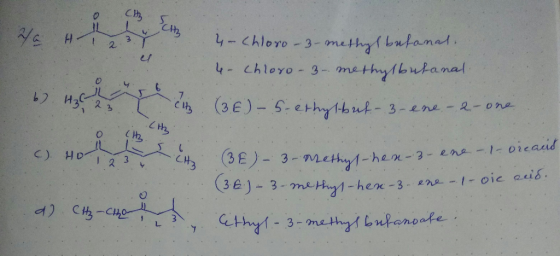 2/a O CH3 5 CH3 H 1 2 3 4 Cl 4-chloro-3-methylbutanal.
4-chloro-3-methylbutanal
b) H3C 1 O 2 3 4 5 6 7 CH3 CH3 (3E)-5-ethylbut-3-ene-2-one
c) HO O 1 2 CH3 3 4 5 6 CH3 (3E)-3-methyl-hex-3-ene-1-oicacid
(3E)-3-methyl-hex-3-ene-1-oic acid.
d) CH3-CH2O O 1 2 3 4 Ethyl-3-methylbutanoate.